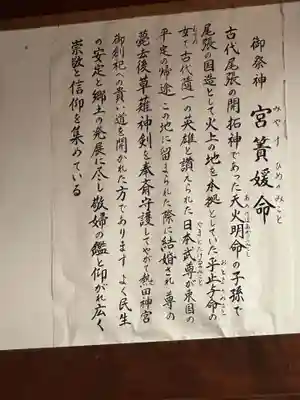 御祭神
宮簀媛命
みやすひめのみこと
古代尾張の開拓神であった天火明命の子孫で
あめのほあかりのみこと
尾張の国造として火上の地を本拠としていた乎止与命の
おとよのみこと
女で古代随一の英雄と讃えられた日本武尊が東国の
やまとたけるのみこと
平定の帰途この地に留まられた際に結婚され尊の
薨去後草薙神剣を奉斎守護してやがて熱田神宮
御創祀への貴い道を開かれた方であります よく民生
の安定と郷土の発展に尽し敬婦の鑑と仰がれ広く
崇敬と信仰を集めている